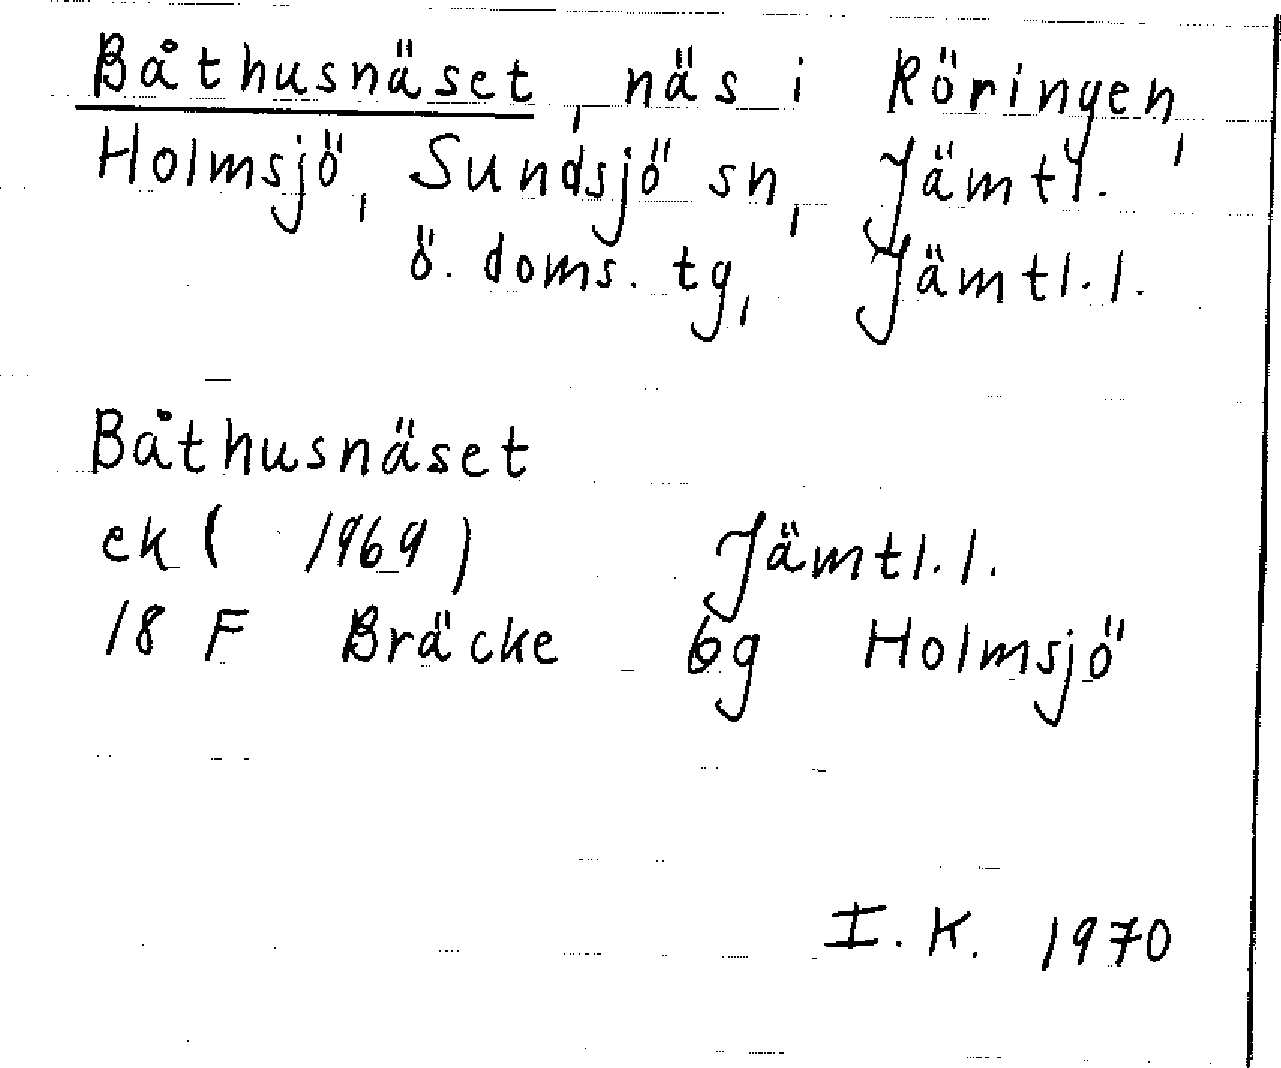 Båthusnäset, näs i Röringen,
Holmsjö, Sundsjö sn, Jämtl.
ö. doms. tg, Jämtl. l.
Båthusnäset
ek ( 1969 ) Jämtl. l.
18 F Bräcke 6g Holmsjö
I. K. 1970